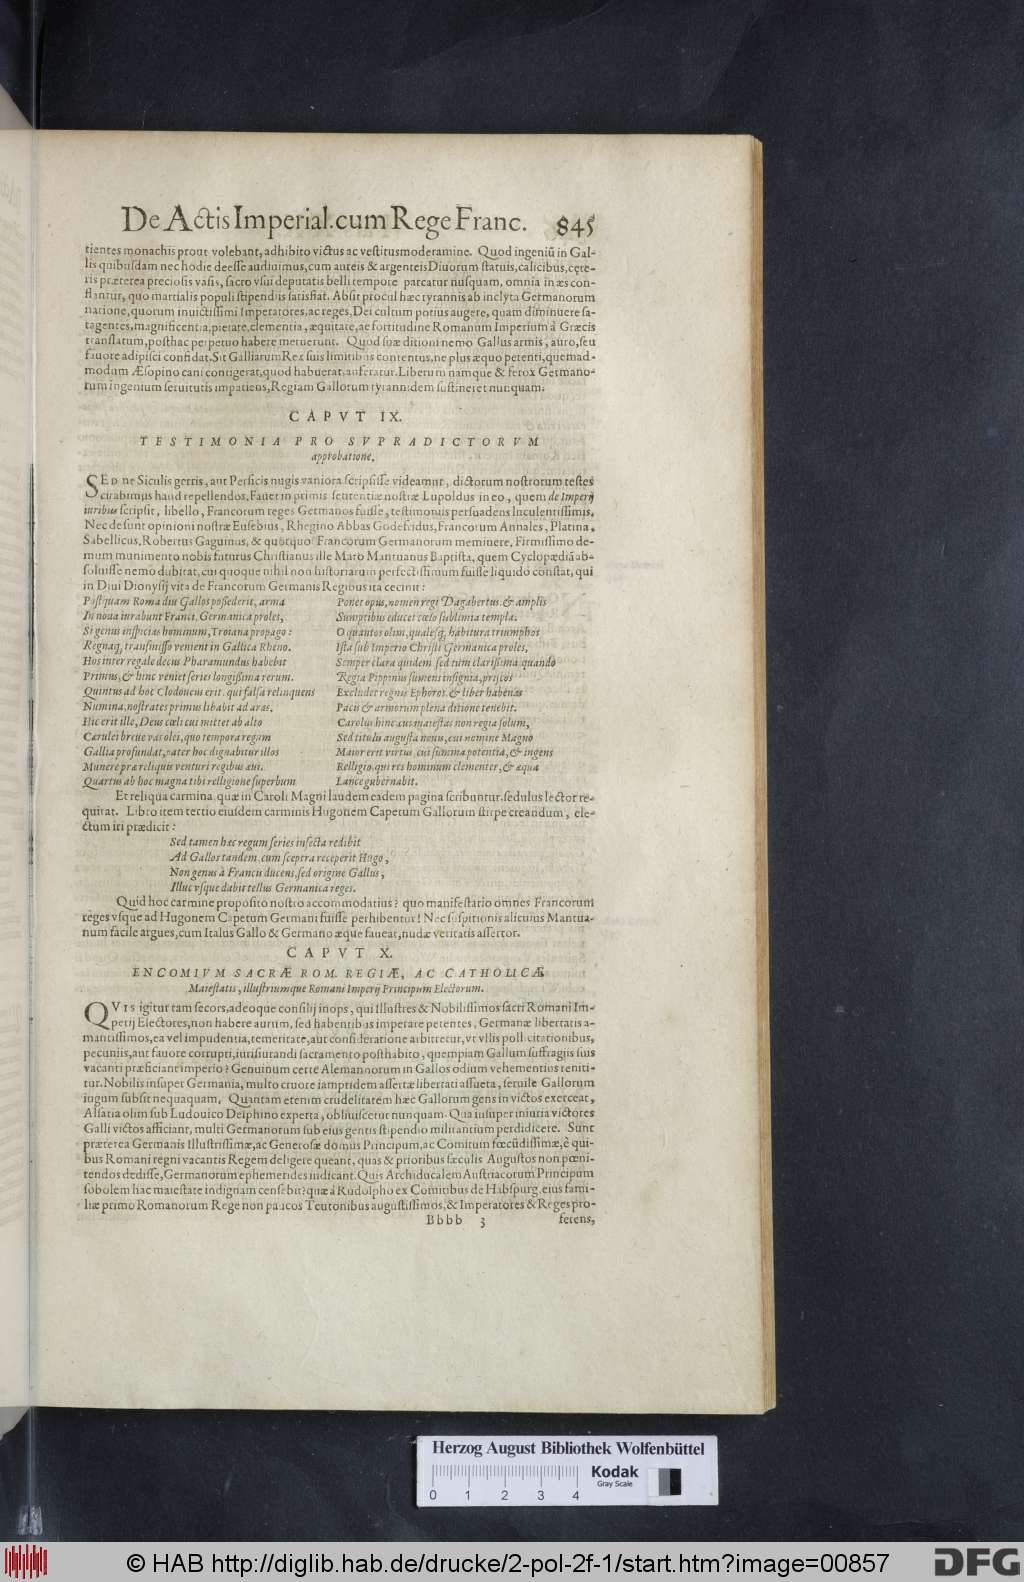 De Actis Imperial. cum Rege Franc. 845
tientes monachis prout volebant, adhibito victus ac vestitus moderamine. Quod ingeniũ in Gal-
lis quibusdam nec hodie deesse audiuimus, cum aureis & argenteis Diuorum statuis, calicibus, cęte-
ris præterea preciosis vasis, sacro vsui deputatis belli tempore parcatur nusquam, omnia in æs con-
flantur, quo martialis populi stipendiis satisfiat. Absit procul hæc tyrannis ab inclyta Germanorum
natione, quorum inuictissimi Imperatores, ac reges, Dei cultum potius augere, quam diminuere sa-
tagentes, magnificentia, pietate, clementia, æquitate, ac fortitudine Romanum Imperium à Græcis
translatum, posthac perpetuo habere meruerunt. Quod suæ ditioni nemo Gallus armis, auro, seu
fauore adipisci confidat. Sit Galliarum Rex suis limitibus contentus, ne plus æquo petenti, quemad-
modum Æsopino cani contigerat, quod habuerat, auferatur. Liberum namque & ferox Germano-
rum ingenium seruitutis impatiens, Regiam Gallorum tyrannidem sustineret nunquam.
CAPVT IX.
TESTIMONIA PRO SVPRADICTORVM
approbatione.
SED ne Siculis gerris, aut Persicis nugis vaniora scripsisse videamur, dictorum nostrorum testes
citabimus haud repellendos. Fauet in primis sententiæ nostræ Lupoldus in eo, quem de Imperij
iuribus scripsit, libello, Francorum reges Germanos fuisse, testimoniis persuadens luculentissimis.
Nec desunt opinioni nostræ Eusebius, Rhegino Abbas Godefridus, Francorum Annales, Platina,
Sabellicus, Robertus Gaguinus, & quotquot Francorum Germanorum meminere. Firmissimo de-
mum munimento nobis futurus Christianus ille Maro Mantuanus Baptista, quem Cyclopædiã ab-
soluisse nemo dubitat, cui quoque nihil non historiarum perfectissimum fuisse liquido constat, qui
in Diui Dionysij vita de Francorum Germanis Regibus ita cecinit:
Postquam Roma diu Gallos possederit, arma
In noua iurabunt Franci, Germanica proles,
Si genus inspicias hominum, Troiana propago:
Regnaq, transmisso venient in Gallica Rheno.
Hos inter regale decus Pharamundus habebit
Primus, & hinc veniet series longissima rerum.
Quintus ad hoc Clodoueus erit, qui falsa relinquens
Numina, nostrates primus libabit ad aras.
Hic erit ille, Deus cœli cui mittet ab alto
Cærulei breue vas olei, quo tempora regum
Gallia profundat, pater hoc dignabitur illos
Munere præ reliquis venturi regibus æui.
Quartus ab hoc magna tibi relligione superbum
Ponet opus, nomen regi Dagabertus, & amplis
Sumptibus educet cœlo sublimia templa.
O quantos olim, qualesq, habitura triumphos
Ista sub Imperio Christi Germanica proles,
Semper clara quidem sed tum clarissima, quando
Regia Pippinus sumens insignia, priscos
Excludet regnis Ephoros, & liber habenas
Pacis & armorum plena ditione tenebit.
Carolus hinc, cui maiestas non regia solum,
Sed titulis augusta nouis, cui nomine Magno
Maior erit virtus, cui summa potentia, & ingens
Relligio, qui res hominum clementer, & æqua
Lance gubernabit.
Et reliqua carmina, quæ in Caroli Magni laudem eadem pagina scribuntur, sedulus lector re-
quirat. Libro item tertio eiusdem carminis Hugonem Capetum Gallorum stirpe creandum, ele-
ctum iri prædicit:
Sed tamen hæc regum series insecta redibit
Ad Gallos tandem, cum sceptra receperit Hugo,
Non genus à Francis ducens, sed origine Gallus,
Illuc vsque dabit tellus Germanica reges.
Quid hoc carmine proposito nostro accommodatius? quo manifestatio omnes Francorum
reges vsque ad Hugonem Capetum Germani fuisse perhibentur! Nec suspitionis alicuius Mantua-
num facile argues, cum Italus Gallo & Germano æque faueat, nudæ veritatis assertor.
CAPVT X.
ENCOMIVM SACRÆ ROM. REGIÆ, AC CATHOLICÆ
Maiestatis, illustriumque Romani Imperij Principum Electorum.
QVIS igitur tam secors, adeoque consilij inops, qui Illustres & Nobilissimos sacri Romani Im-
perij Electores, non habere aurum, sed habentibus imperare petentes, Germanæ libertatis a-
mantissimos, ea vel impudentia, temeritate, aut consideratione arbitretur, vt vllis pollicitationibus,
pecuniis, aut fauore corrupti, iurisiurandi sacramento posthabito, quempiam Gallum suffragiis suis
vacanti præficiant imperio? Genuinum certe Alemannorum in Gallos odium vehementius reniti-
tur. Nobilis insuper Germania, multo cruore iampridem assertæ libertati assueta, seruile Gallorum
iugum subsit nequaquam. Quantam etenim crudelitatem hæc Gallorum gens in victos exerceat,
Alsatia olim sub Ludouico Delphino experta, obliuiscetur nunquam. Qua insuper iniuria victores
Galli victos afficiant, multi Germanorum sub eius gentis stipendio militantium perdidicere. Sunt
præterea Germanis Illustrissimæ, ac Generosæ domus Principum, ac Comitum fœcũdissimæ, è qui-
bus Romani regni vacantis Regem deligere queant, quas & prioribus sæculis Augustos non pœni-
tendos dedisse, Germanorum ephemerides indicant. Quis Archiducalem Austriacorum Principum
sobolem hac maiestate indignam censebit? quæ à Rudolpho ex Comitibus de Habspurg, eius fami-
liæ primo Romanorum Rege non paucos Teutonibus augustissimos, & Imperatores & Reges pro-
Bbbb 3 ferens,
Herzog August Bibliothek Wolfenbüttel
Kodak
Gray Scale
0 1 2 3 4
© HAB http://diglib.hab.de/drucke/2-pol-2f-1/start.htm?image=00857
DFG